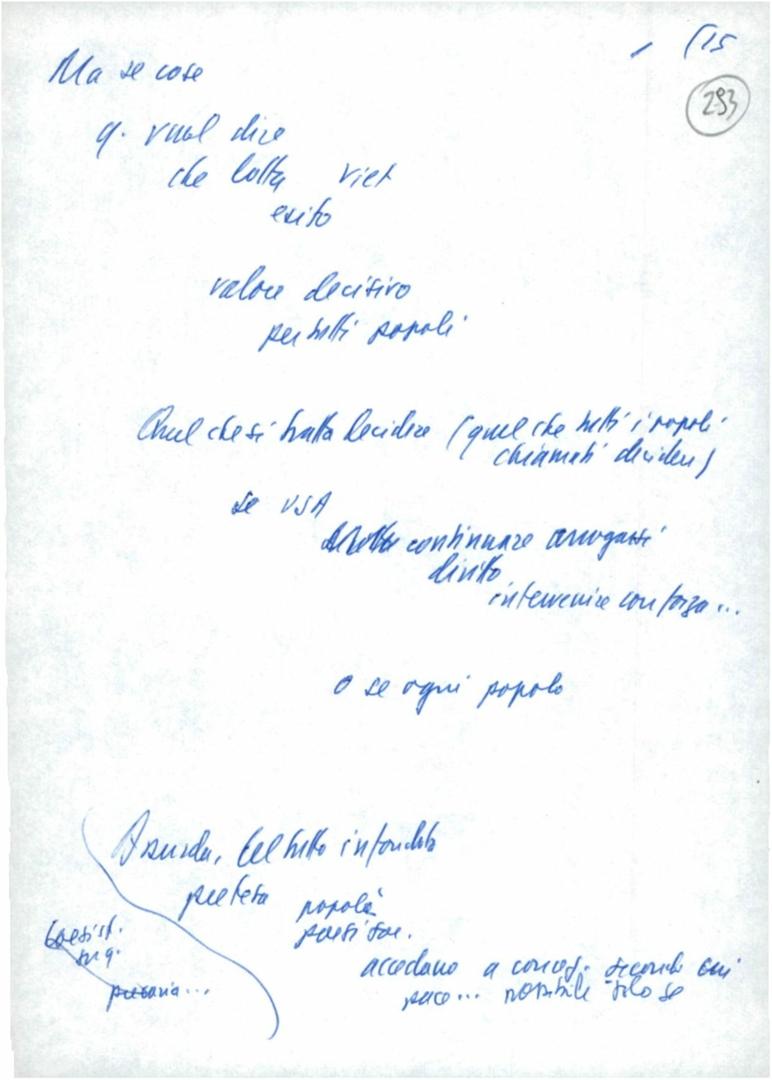 (15
293
Ma se cose
q. vuol dire
che lotta Viet
esito
valore decisivo
per tutti popoli
Quel che si tratta decidere (quel che tutti i popoli
chiamati decidere)
se USA
continuare arrogarsi
diritto
intervenire con forza...
o se ogni popolo
Assurda, del tutto infondata
pretesa popoli
paesi soc.
accedano a concez. secondo cui
pace... possibile solo se
Coesist.
su q.
precaria...